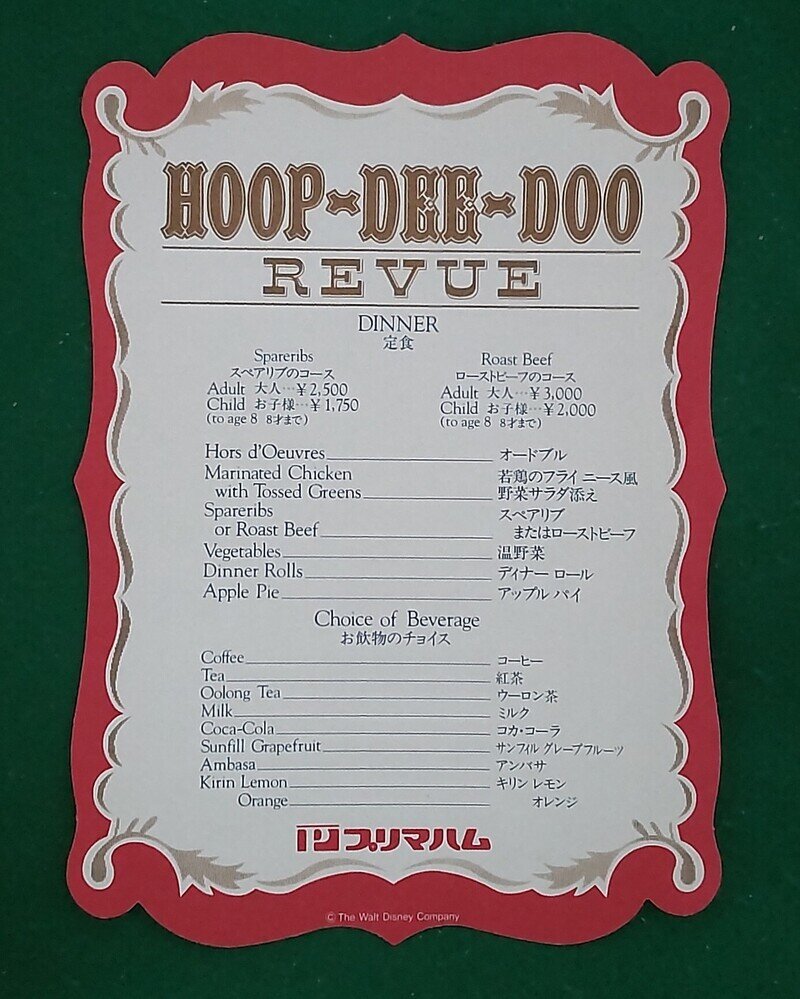 HOOP-DEE-DOO
REVUE
DINNER
定食
Spareribs
スペアリブのコース
Adult 大人…¥2,500
Child お子様…¥1,750
(to age 8 8才まで)
Roast Beef
ローストビーフのコース
Adult 大人…¥3,000
Child お子様…¥2,000
(to age 8 8才まで)
Hors d'Oeuvres オードブル
Marinated Chicken 若鶏のフライ ニース風
with Tossed Greens 野菜サラダ添え
Spareribs スペアリブ
or Roast Beef またはローストビーフ
Vegetables 温野菜
Dinner Rolls ディナー ロール
Apple Pie アップル パイ
Choice of Beverage
お飲物のチョイス
Coffee コーヒー
Tea 紅茶
Oolong Tea ウーロン茶
Milk ミルク
Coca-Cola コカ・コーラ
Sunfill Grapefruit サンフィル グレープフルーツ
Ambasa アンバサ
Kirin Lemon キリン レモン
Orange オレンジ
プリマハム
© The Walt Disney Company